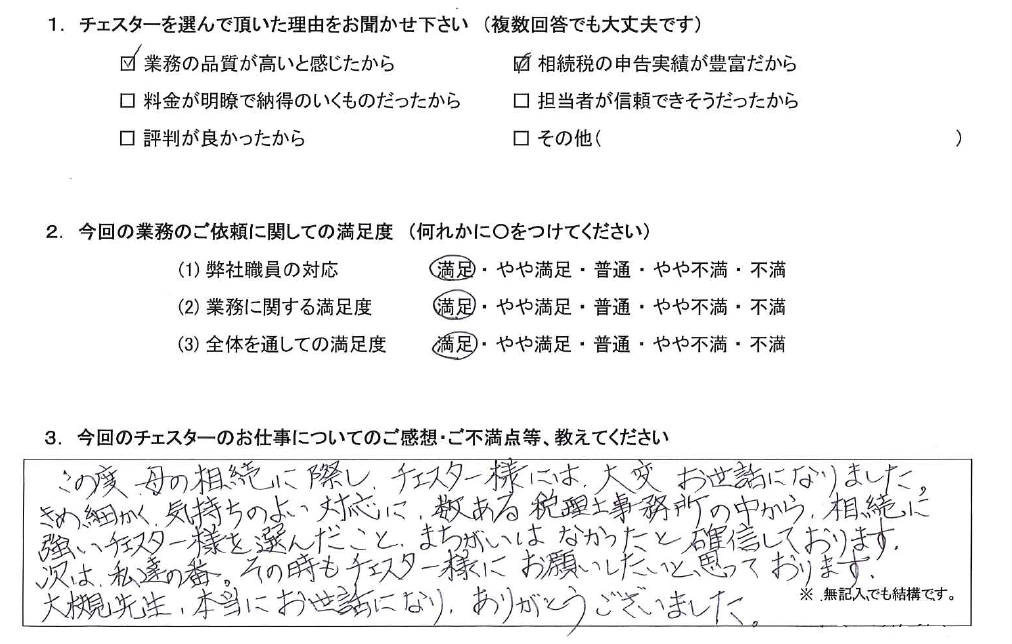 1. チェスターを選んで頂いた理由をお聞かせ下さい (複数回答でも大丈夫です)
☑ 業務の品質が高いと感じたから ☑ 相続税の申告実績が豊富だから
□ 料金が明瞭で納得のいくものだったから □ 担当者が信頼できそうだったから
□ 評判が良かったから □ その他( )
2. 今回の業務のご依頼に関しての満足度 (何れかに〇をつけてください)
(1) 弊社職員の対応 満足・やや満足・普通・やや不満・不満
(2) 業務に関する満足度 満足・やや満足・普通・やや不満・不満
(3) 全体を通しての満足度 満足・やや満足・普通・やや不満・不満
3. 今回のチェスターのお仕事についてのご感想・ご不満点等、教えてください
この度、母の相続に際し、チェスター様には、大変 お世話になりました。
きめ細かく、気持ちのよい 対応に、数ある 税理士事務所の中から、相続に
強いチェスター様を選んだこと、まちがいはなかったと確信しております。
次は、私達の番。その時もチェスター様に お願いしたいと思って おります。
大槻先生、本当にお世話になり、ありがとうございました。
※ 無記入でも結構です。